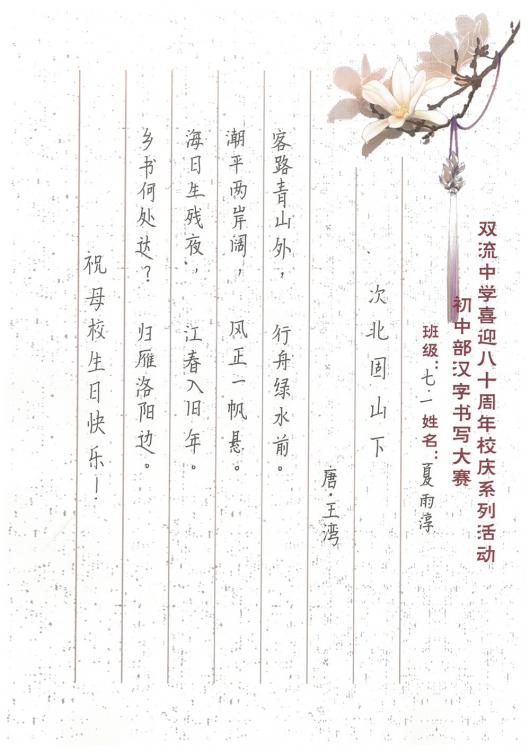 双流中学喜迎八十周年校庆系列活动
初中部汉字书写大赛
班级：七.一 姓名：夏雨淳
次北固山下
唐·王湾
客路青山外，行舟绿水前。
潮平两岸阔，风正一帆悬。
海日生残夜，江春入旧年。
乡书何处达？归雁洛阳边。
祝母校生日快乐！